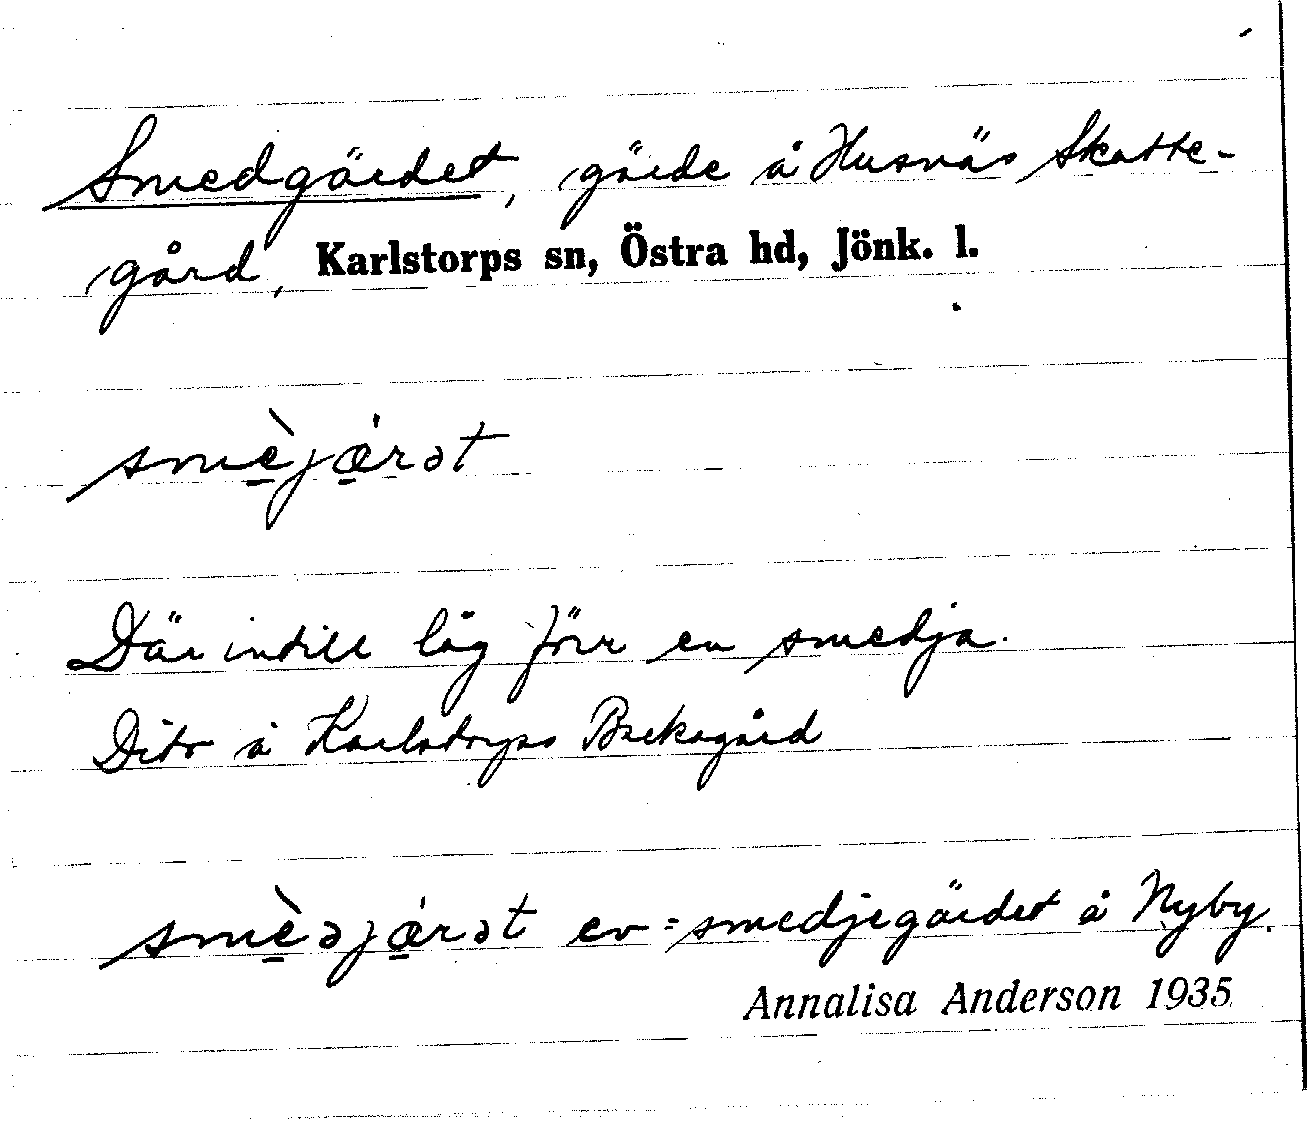 Smedgärdet, gärde å Husnäs Skatte-
gård, Karlstorps sn, Östra hd, Jönk. l.
smèjæ̇rət
Där intill låg förr en smedja.
Dito å Karlstorps Backagård
smèəjæ̇rət ev = smedjegärdet å Nyby.
Annalisa Anderson 1935